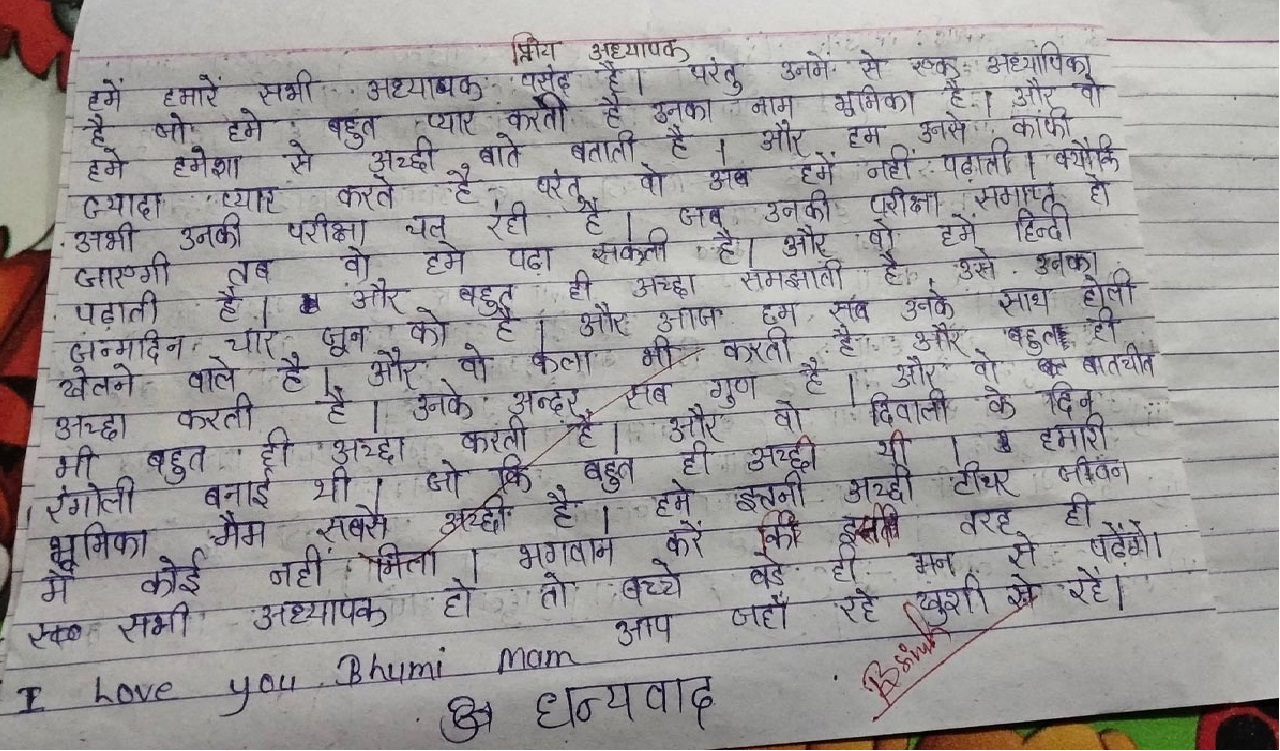 प्रिय अध्यापक
हमें हमारें सभी अध्यापक पसंद है। परंतु उनमें से एक अध्यापिका
है जो हमे बहुत प्यार करती है उनका नाम भुमिका है। और वो
हमे हमेशा से अच्छी बाते बताती है। और हम उनसे काफी
ज्यादा प्यार करते है परंतु वो अब हमें नहीं पढ़ाती। क्योंकि
अभी उनकी परीक्षा चल रही है। जब उनकी परीक्षा समाप्त हो
जाएगी तब वो हमे पढा सकती है। और वो हमें हिन्दी
पढ़ाती है। और बहुत ही अच्छा समझाती है उसे उनका
जन्मदिन चार जून को है। और आज हम सब उनके साथ होली
खेलने वाले है। और वो कला भी करती है और बहुत ही
अच्छा करती है। उनके अन्दर सब गुण है। और वो बातचीत
भी बहुत ही अच्छा करती है। और वो दिवाली के दिन
रंगोली बनाई थी। जो कि बहुत ही अच्छी थी। हमारी
भूमिका मैम सबसे अच्छी है। हमे इतनी अच्छी टीचर जीवन
में कोई नहीं मिला। भगवाम करें की इसी तरह ही
सभी अध्यापक हो तो बच्चे बड़े ही मन से पढ़ेंगे।
आप जहाँ रहे खुशी से रहें।
I Love you Bhumi mam
धन्यवाद